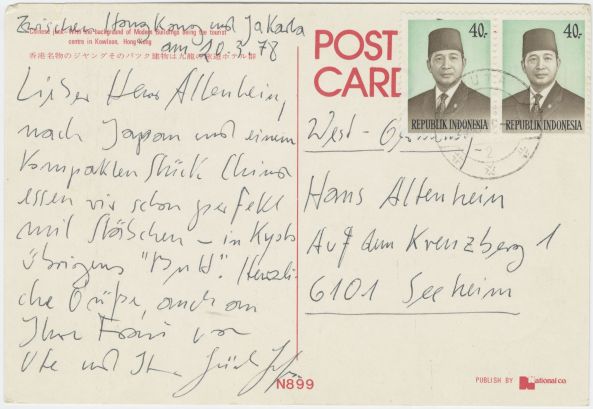 Zwischen Hongkong und Jakarta
am 10.3.78
Chinese junk With the background of Modern Buildings being the tourist
centre in Kowloon, Hong Kong
Lieber Herr Altenhein,
nach Japan und einem
kompakten Stück China
essen wir schon perfekt
mit Stäbchen – in Kyoto
übrigens
Herzli-
che Grüße, auch an
Ihre Frau von
Ute und Ihrem
POST
CARD
40.-
REPUBLIK INDONESIA
40.-
REPUBLIK INDONESIA
West-Germany
Hans Altenhein
Auf dem Kreuzberg 1
6101 Seeheim
N899
PUBLISH BY National Co.